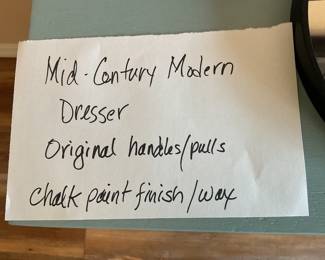 Mid-Century Modern
Dresser
Original handles/pulls
Chalk paint finish/wax